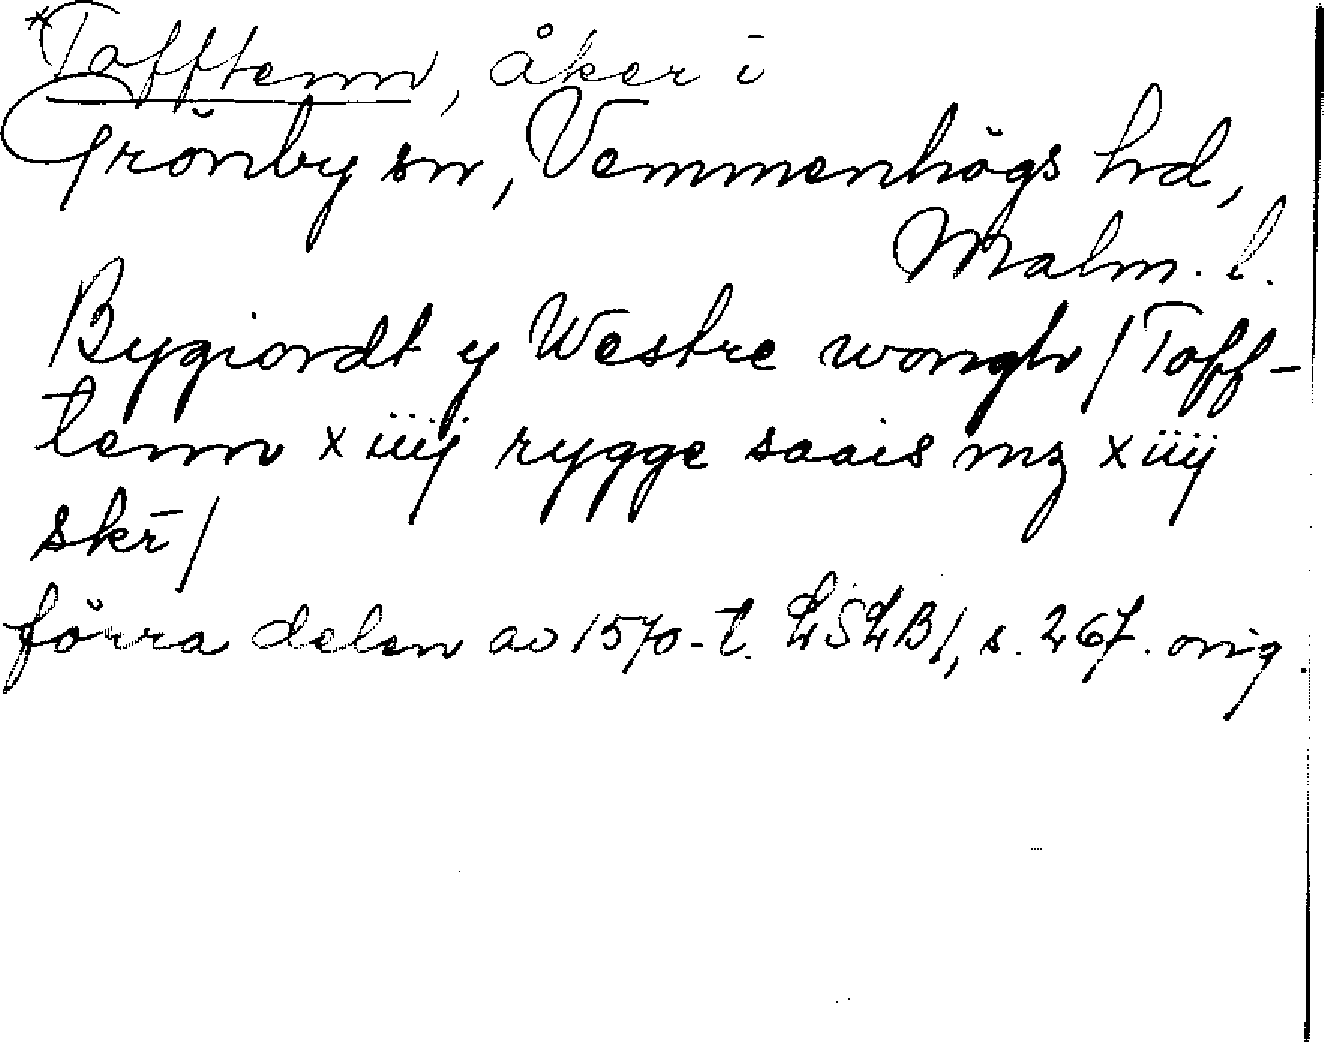 *Tofftenn, åker i
Grönby sn, Vemmenhögs hd,
Malm. l.
Bygiordt y Westre wongh / Toff-
tenn xiiij rygge saais mz xiiij
skr̄ /
förra delen av 1570-t. LSLB1, s. 267. orig.